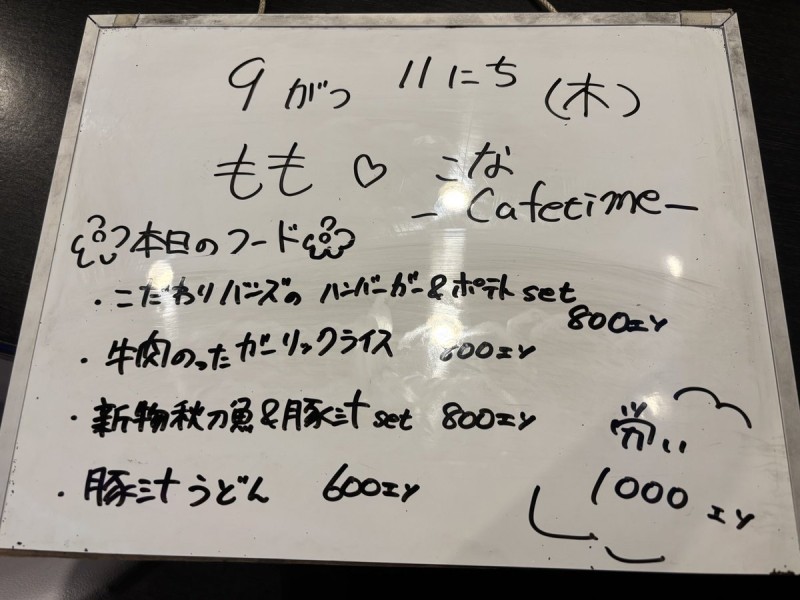 9がつ 11にち (木)
もも♡こな
- Cafetime -
本日のフード
・こだわりバンズのハンバーガー&ポテトset 800エン
・牛肉のったガーリックライス 800エン
・新物秋刀魚&豚汁set 800エン
・豚汁うどん 600エン
1000エン